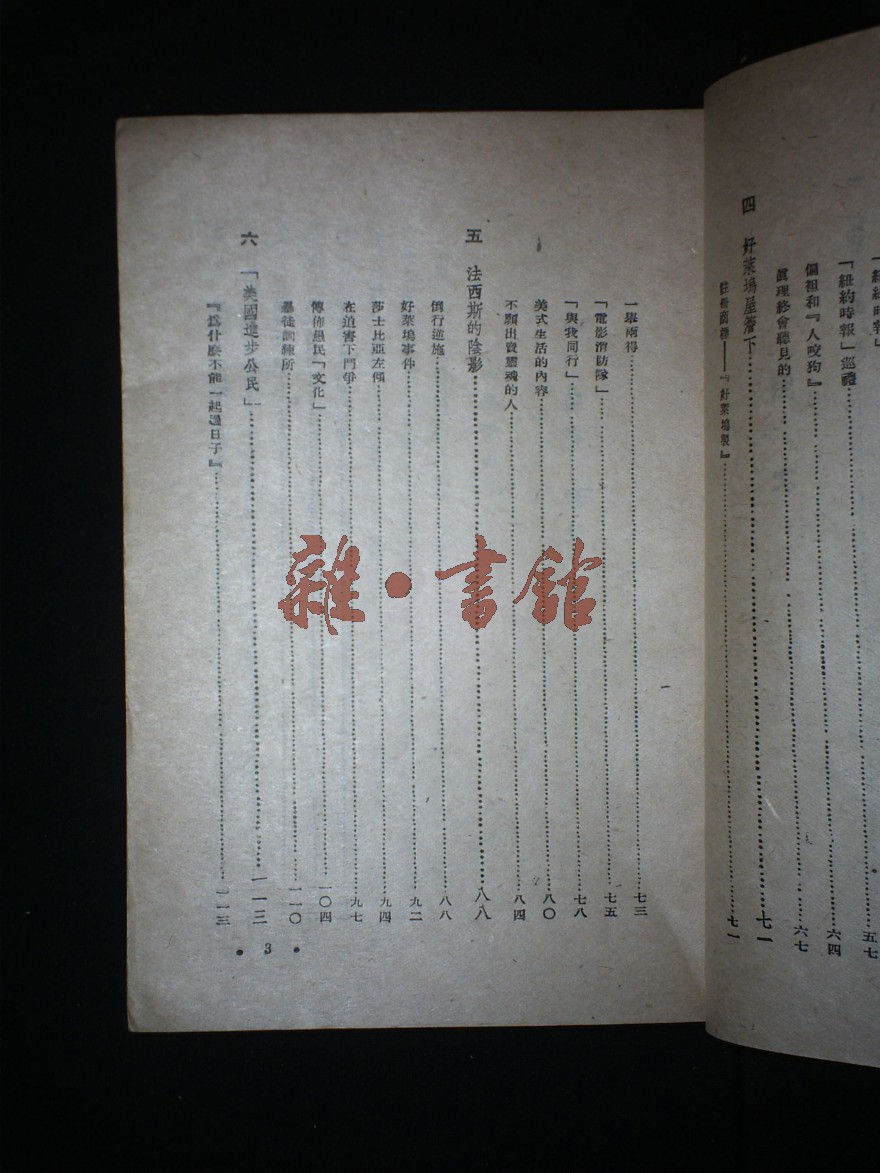 「紐約時報」……五七
「紐約時報」巡禮……六四
偏袒和『人咬狗』……六七
眞理終會聽見的
四 好萊塢屋簷下……七一
註册商標——『好萊塢製』……七一
一舉兩得……七三
「電影消防隊」……七五
「與我同行」……七八
美式生活的內容……八〇
不願出賣靈魂的人……八四
五 法西斯的陰影……八八
倒行逆施……八八
好萊塢事件……九二
莎士比亞左傾……九四
在迫害下鬥爭……九七
傳佈愚民「文化」……一〇四
暴徒訓練所……一一〇
六 「美國進步公民」……一一三
『爲什麽不能一起過日子』……一一三
• 3 •
雜•書館